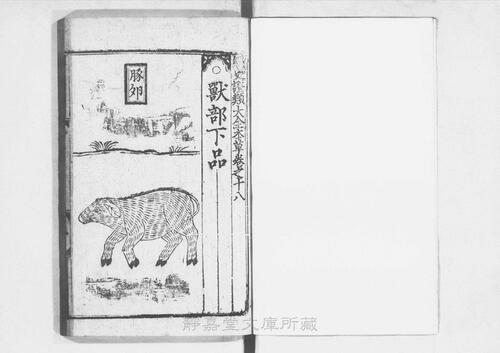 經史證類大全本草卷之十八
獸部下品
豚卵
靜嘉堂文庫所藏